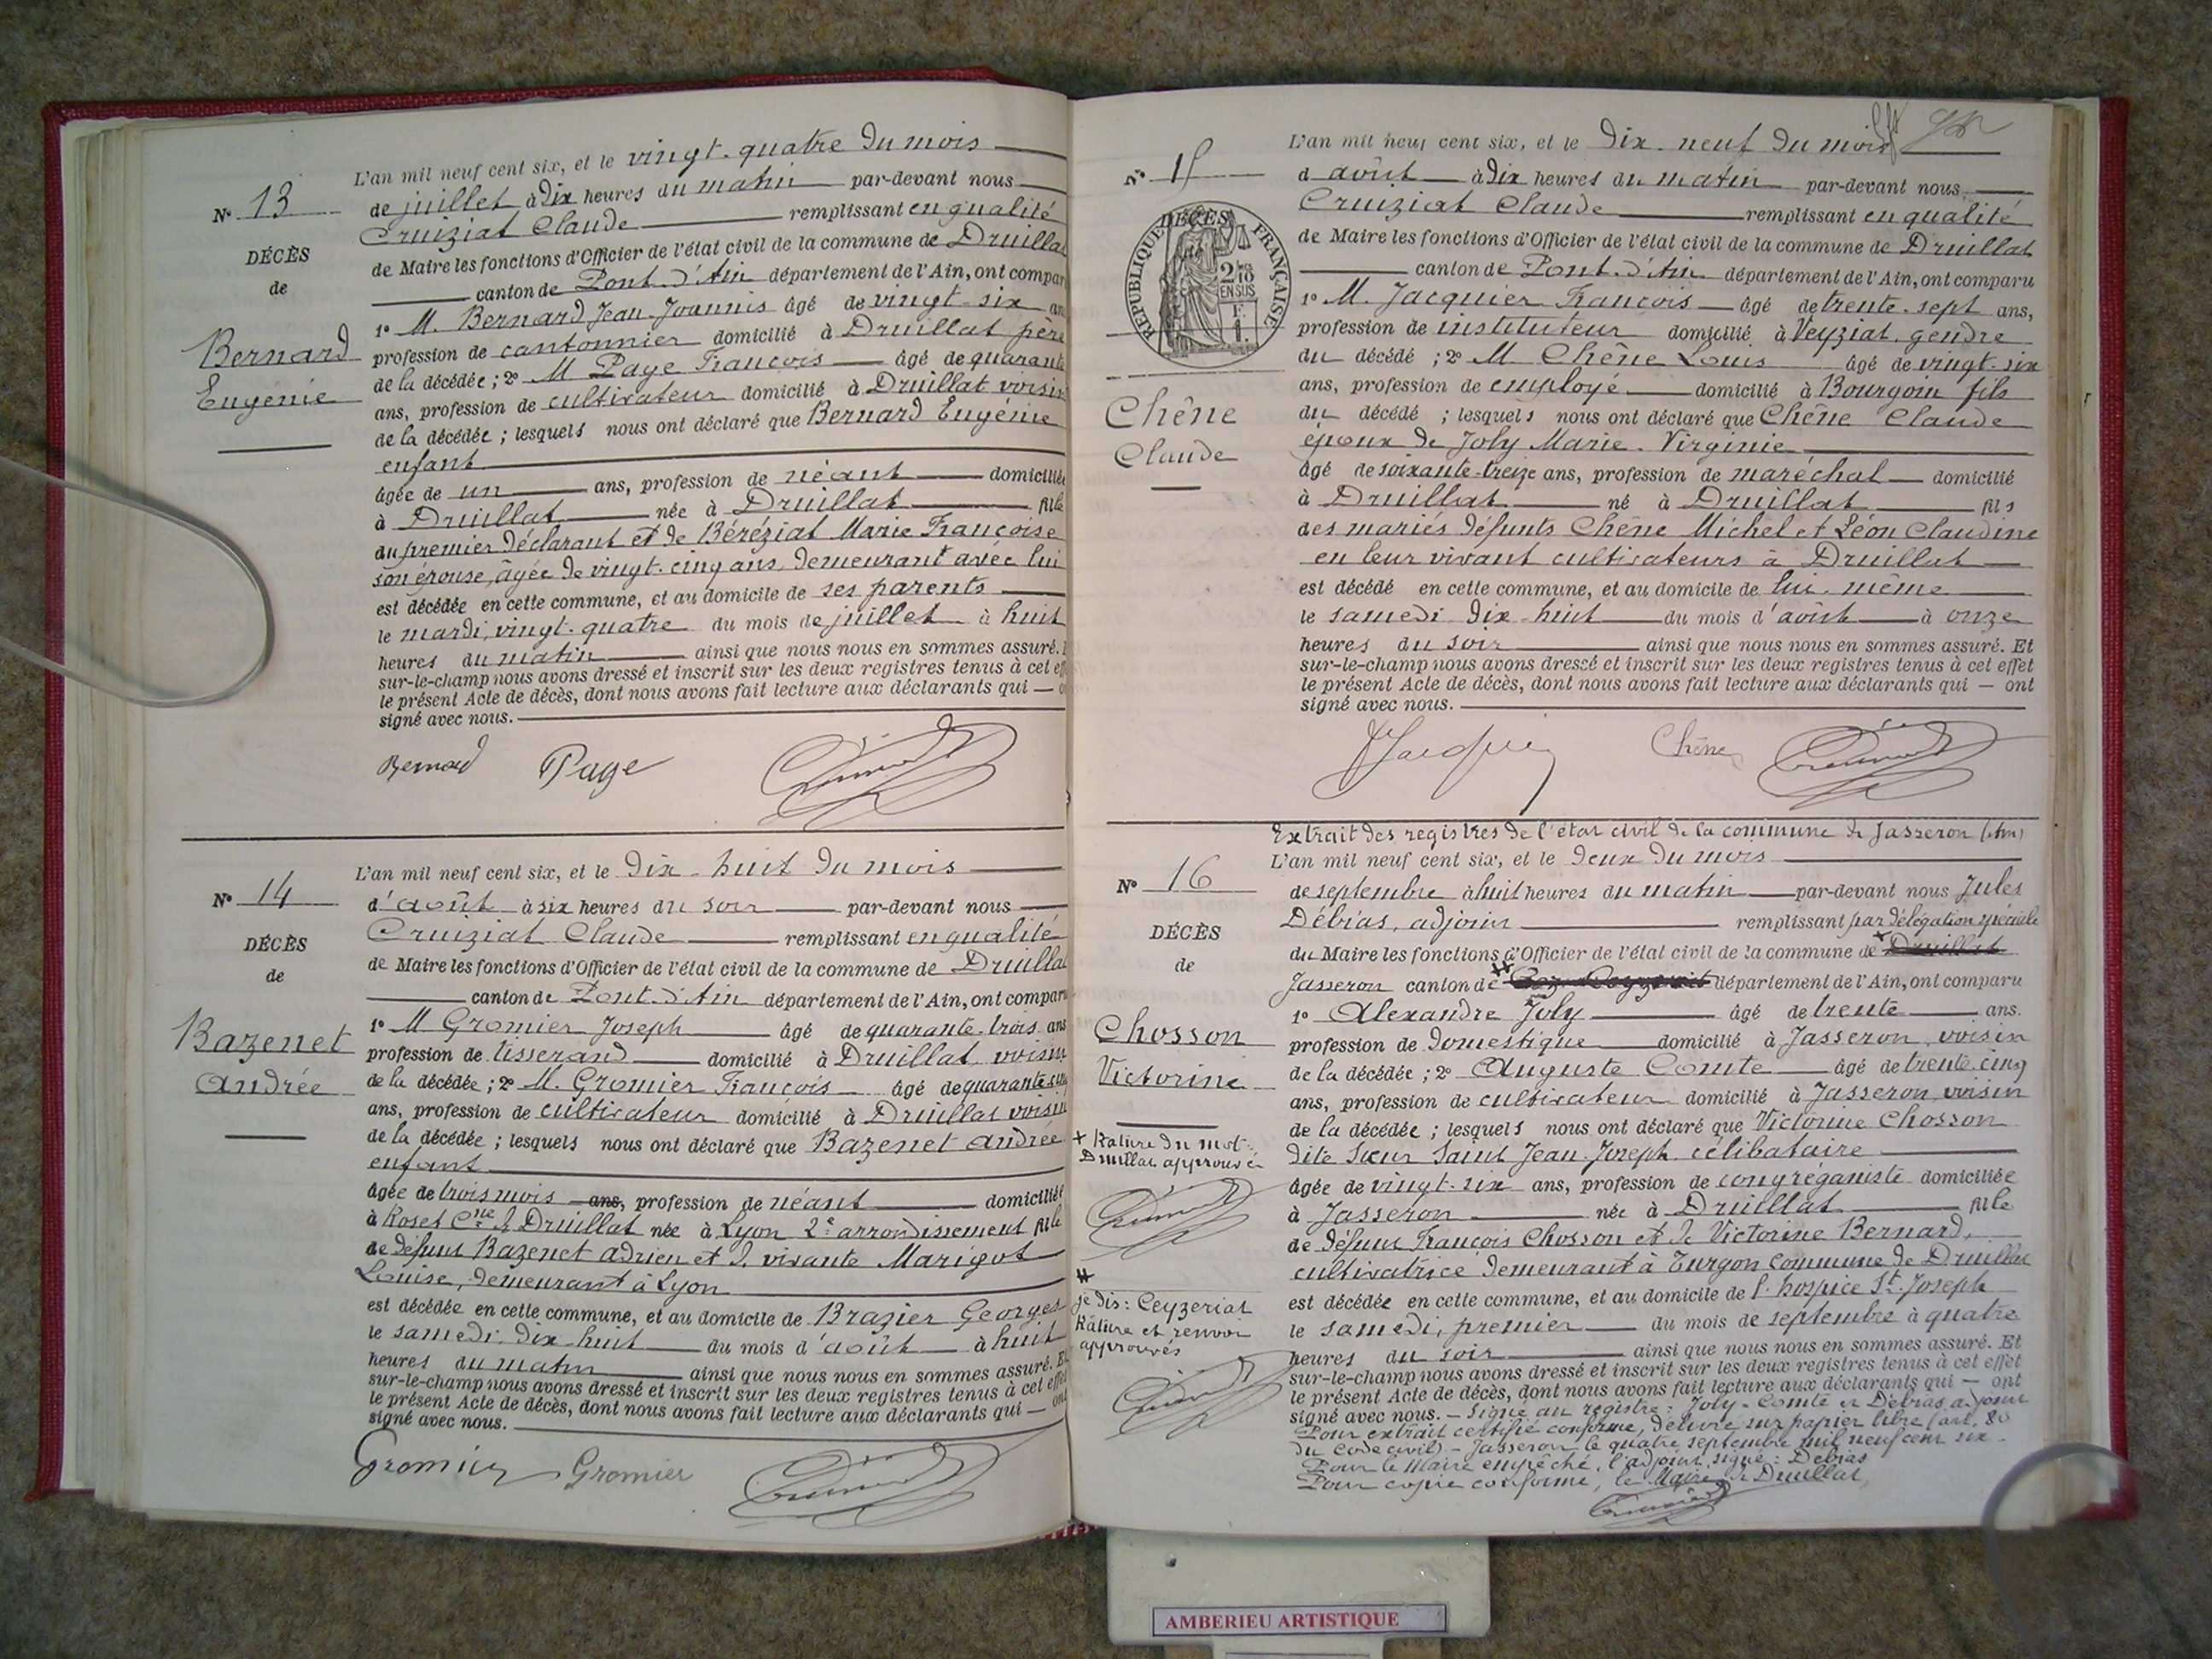 L'an mil neuf cent six, et le vingt-quatre du mois
N° 13
de juillet à dix heures du matin par-devant nous
Cruiziat Claude remplissant en qualité
DÉCÈS
de Maire les fonctions d'Officier de l'état civil de la commune de Druillat
de
canton de Pont-d'Ain département de l'Ain, ont comparu
1° M. Bernard Jean-Joannis âgé de vingt-six ans
Bernard
profession de cantonnier domicilié à Druillat père
de la décédée ; 2° M Page François âgé de quarante
Eugénie
ans, profession de cultivateur domicilié à Druillat voisin
de la décédée ; lesquels nous ont déclaré que Bernard Eugénie
enfant
âgée de un ans, profession de néant domiciliée
à Druillat née à Druillat fille
du premier déclarant et de Béréziat Marie Françoise
son épouse, âgée de vingt-cinq ans, demeurant avec lui
est décédée en cette commune, et au domicile de ses parents
le mardi, vingt-quatre du mois de juillet à huit
heures du matin ainsi que nous nous en sommes assuré.
sur-le-champ nous avons dressé et inscrit sur les deux registres tenus à cet eff
le présent Acte de décès, dont nous avons fait lecture aux déclarants qui — o
signé avec nous.
Bernard Page Cruiziat
L'an mil neuf cent six, et le dix-huit du mois
N° 14
d'août à six heures du soir par-devant nous
Cruiziat Claude remplissant en qualité
DÉCÈS
de Maire les fonctions d'Officier de l'état civil de la commune de Druillat
de
canton de Pont-d'Ain département de l'Ain, ont comparu
1° M Gromier Joseph âgé de quarante-trois ans
Bazenet
profession de tisserand domicilié à Druillat voisin
Andrée
de la décédée ; 2° M. Gromier François âgé de quarante
ans, profession de cultivateur domicilié à Druillat voisin
de la décédée ; lesquels nous ont déclaré que Bazenet Andrée
enfant
âgée de trois mois ans, profession de néant domiciliée
à Roset Cne de Druillat née à Lyon 2e arrondissement fille
de défunt Bazenet Adrien et de vivante Marigot
Louise, demeurant à Lyon
est décédée en cette commune, et au domicile de Brazier Georges
le samedi, dix-huit du mois d'août à huit
heures du matin ainsi que nous nous en sommes assuré. Et
sur-le-champ nous avons dressé et inscrit sur les deux registres tenus à cet effet
le présent Acte de décès, dont nous avons fait lecture aux déclarants qui — ont
signé avec nous.
Gromier Gromier Cruiziat
L'an mil neuf cent six, et le dix-neuf du mois
N° 15
d'août à dix heures du matin par-devant nous
Cruiziat Claude remplissant en qualité
RÉPUBLIQUE FRANÇAISE
DÉCÈS
2 10es EN SUS
1 F.
de Maire les fonctions d'Officier de l'état civil de la commune de Druillat
canton de Pont-d'Ain département de l'Ain, ont comparu
1° M. Jacquier François âgé de trente-sept ans,
profession de instituteur domicilié à Veyziat, gendre
du décédé ; 2° M Chêne Louis âgé de vingt-six
ans, profession de employé domicilié à Bourgoin fils
Chêne
du décédé ; lesquels nous ont déclaré que Chêne Claude
époux de Joly Marie-Virginie
Claude
âgé de soixante-treize ans, profession de maréchal domicilié
à Druillat né à Druillat fils
des mariés défunts Chêne Michel et Léon Claudine
en leur vivant cultivateurs à Druillat
est décédé en cette commune, et au domicile de lui-même
le samedi dix-huit du mois d'août à onze
heures du soir ainsi que nous nous en sommes assuré. Et
sur-le-champ nous avons dressé et inscrit sur les deux registres tenus à cet effet
le présent Acte de décès, dont nous avons fait lecture aux déclarants qui — ont
signé avec nous.
Jacquier Chêne Cruiziat
Extrait des registres de l'état civil de la commune de Jasseron (Ain)
L'an mil neuf cent six, et le deux du mois
N° 16
de septembre à huit heures du matin par-devant nous Jules
Débias, adjoint remplissant par délégation spéciale
DÉCÈS
du Maire les fonctions d'Officier de l'état civil de la commune de + Druillat
de
Jasseron canton de # département de l'Ain, ont comparu
1° Alexandre Joly âgé de trente ans.
Chosson
profession de domestique domicilié à Jasseron, voisin
Victorine
de la décédée ; 2° Auguste Comte âgé de trente-cinq
ans, profession de cultivateur domicilié à Jasseron, voisin
de la décédée ; lesquels nous ont déclaré que Victorine Chosson
+ Rature du mot
Druillat approuvée
dite Sœur Saint Jean-Joseph célibataire
âgée de vingt-six ans, profession de congréganiste domiciliée
à Jasseron née à Druillat fille
de défunt François Chosson et de Victorine Bernard,
cultivatrice demeurant à Turgon commune de Druillat
#
je dis : Ceyzériat
Rature et renvoi
approuvés
est décédée en cette commune, et au domicile de l'hospice St Joseph
le samedi, premier du mois de septembre à quatre
heures du soir ainsi que nous nous en sommes assuré. Et
sur-le-champ nous avons dressé et inscrit sur les deux registres tenus à cet effet
le présent Acte de décès, dont nous avons fait lecture aux déclarants qui — ont
signé avec nous. — Signé au registre : Joly, Comte et Débias adjoint
Pour extrait certifié conforme, délivré sur papier libre (art. 80
du code civil) — Jasseron le quatre septembre mil neuf cent six.
Pour le Maire empêché, l'adjoint, signé : Débias
Pour copie conforme, le Maire de Druillat,
Cruiziat
AMBERIEU ARTISTIQUE